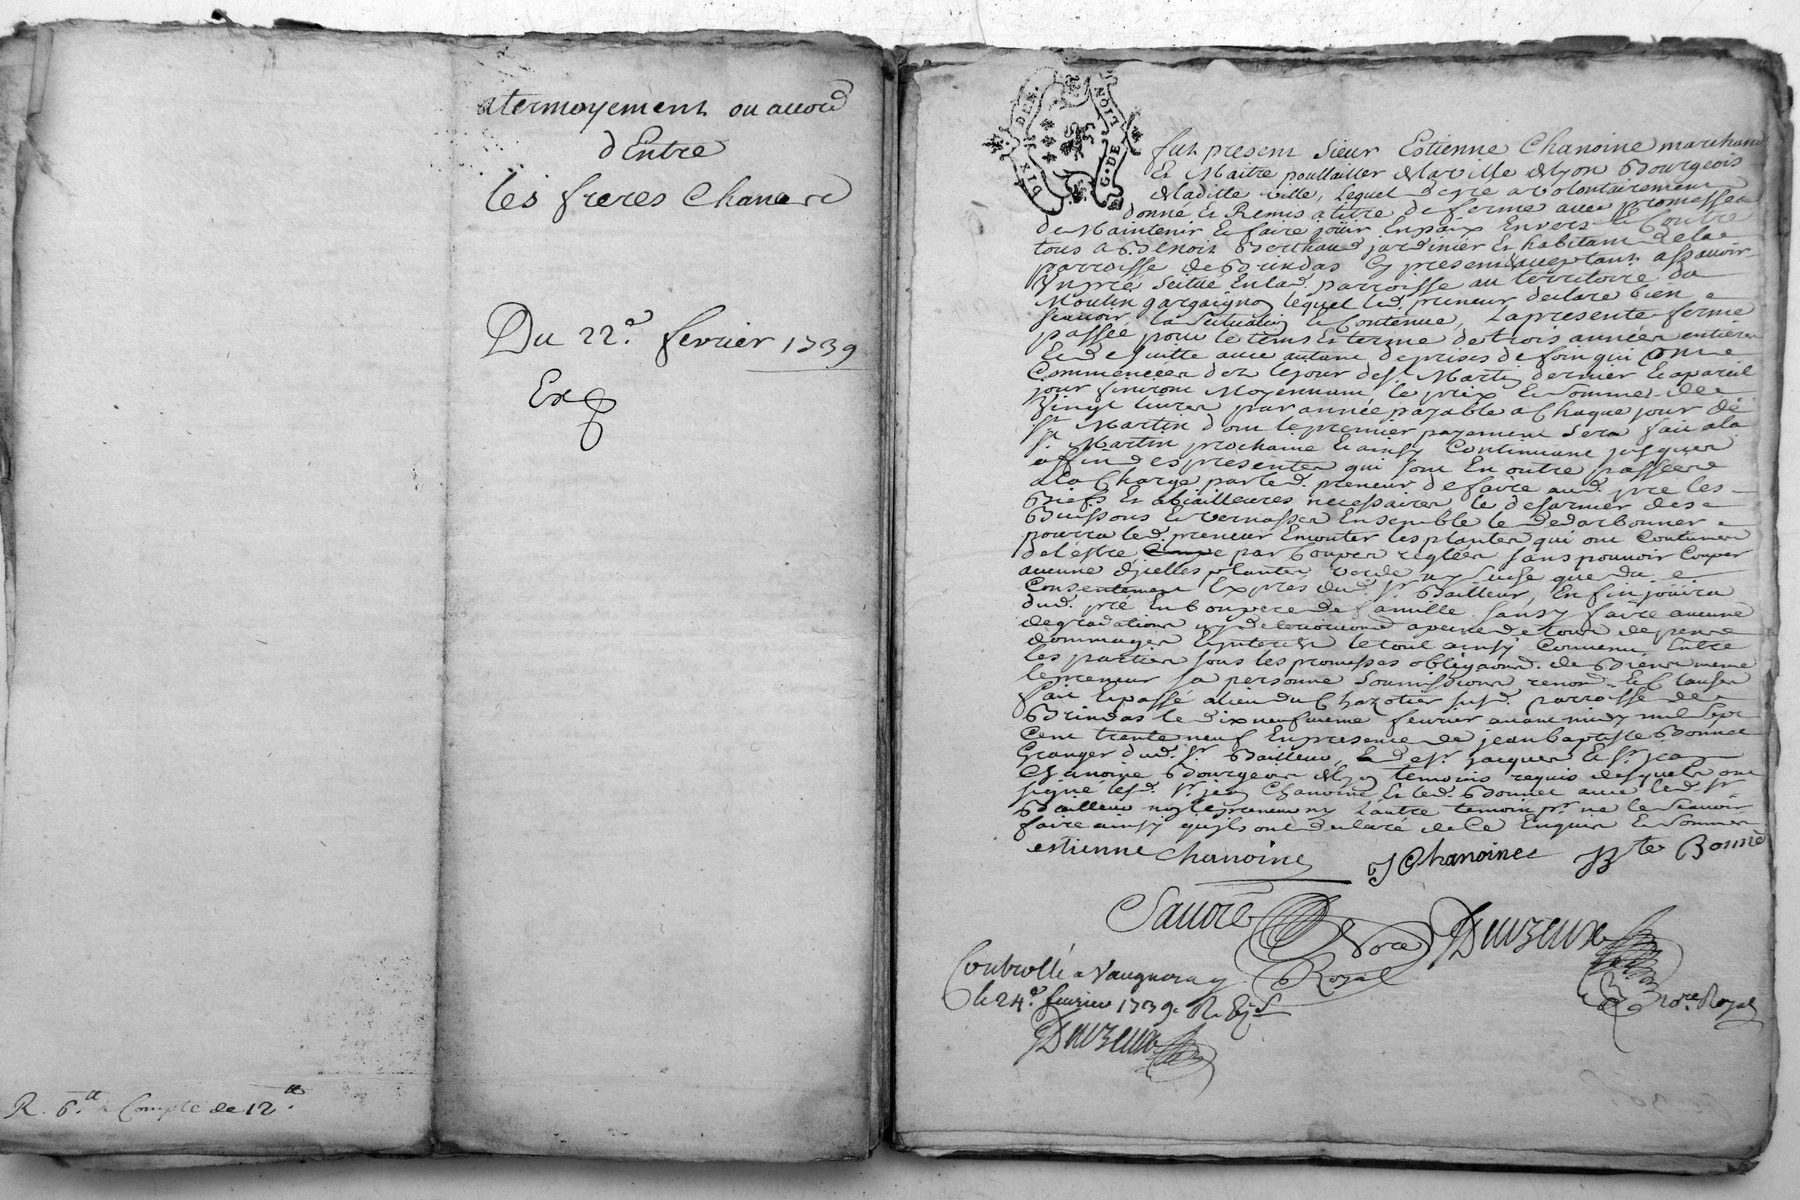 atermoyement ou accord
d'Entre
les freres Chanard
Du 22.e fevrier 1739
Exp
R. 6.tt a Compte de 12.tt
DIX DEN.
G. DE LION
fut present Sieur Estienne Chanoine marchand
Et Maitre poullailler de la ville de Lyon Bourgeois
de laditte ville, Lequel de gré a volontairement
donné Et Remis a titre de ferme avec promesse
de Maintenir Et faire jouir En paix Envers Et Contre
tous a Benoit Berthaud jardinier Et habitant de la
parroisse de Brindas cy present & acceptant assavoir
Un pré scitué En lad. parroisse au territoire du
Moulin gargaignon lequel led. preneur declare bien
scavoir la scituation Et Contenue, La presente ferme
passée pour le tems Et terme de trois années entieres
Et de suitte avec autant de prises de foin qui ont
Commencées dez le jour de st. Martin dernier Et a pareil
jour finiront Moyennant le prix Et somme de
Vingt livres par année payable a Chaque jour de
st. Martin dont le premier payement sera fait a la
st. Martin prochaine Et ainsy Continuant jusques
a fin des presentes qui sont En outre passées
a la Charge par led. preneur de faire aud. pré les
Biefs Et abeailleures necessaires le desarmer des
Buissons Et vernasses Ensemble le dedarbonner
pourra led. preneur Emonter les plantes qui ont Coutume
de l'estre par Coupes reglées sans pouvoir Couper
aucune d'icelles plantes verde ny seiche que du
Consentement Exprès dud. sr. Bailleur, Enfin jouira
dud. pré En bon pere de famille sans y faire aucune
degradations ny deteriorions a peine de tous depens
dommages Et interets le tout ainsy Convenu Entre
les parties sous les promesses obligaons. de Biens meme
le preneur sa personne soumissions renonc. Et Clauses
fait Et passé au lieu du Chazotier susd. parroisse de
Brindas le dix neufvieme fevrier avant midy mil sept
Cent trente neuf En presence de jean baptiste Bonnet
Granger dud. sr. Bailleur, Et de sr. jacques Et sr. jean
Chanoine Bourgeois de Lyon temoins requis desquels ont
signé lesd. sr. jean Chanoine Et led. Bonnet avec led. sr.
Bailleur non le preneur ny L'autre temoin pr. ne le scavoir
faire ainsy qu'ils ont declaré de Ce Enquis Et Sommés
estienne Chanoine
J Chanoine
JBte Bonnet
Nore
Royal
Deuzeux
Nore. Royal
Controllé a Vaugneray
le 24.e fevrier 1739. R.
Deuzeux